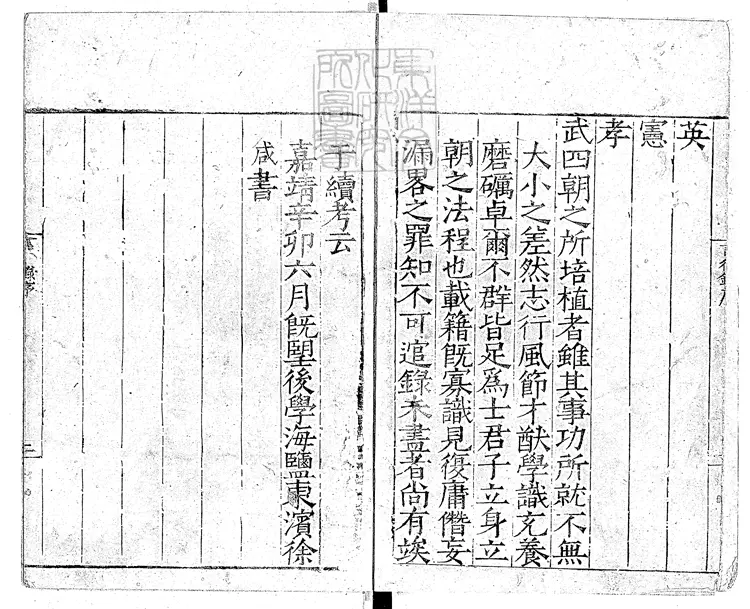 英
憲
孝
武四朝之所培植者雖其事功所就不無
大小之差然志行風節才猷學識充養
磨礪卓爾不群皆足爲士君子立身立
朝之法程也載籍旣寡識見復庸僭妄
漏畧之罪知不可逭錄未盡者尚有竢
于續考云
嘉靖辛卯六月旣朢後學海鹽東濱徐
咸書